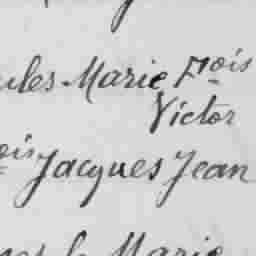 ules Marie Fois
Victor
ois Jacques Jean
Marie